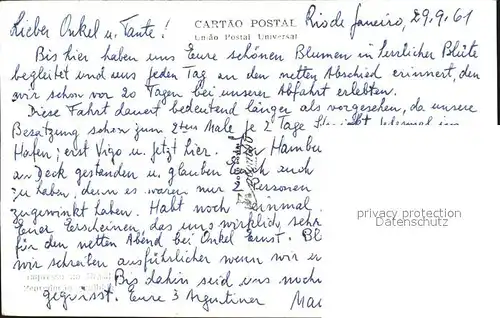 Lieber Onkel u. Tante!
CARTÃO POSTAL
União Postal Universal
Rio de Janeiro, 29.9.61
Bis hier haben uns Eure schönen Blumen in herrlicher Blüte
begleitet und uns jeden Tag an den netten Abschied erinnert, den
wir schon vor 20 Tagen bei unserer Abfahrt erlebten.
Diese Fahrt dauert bedeutend länger als vorgesehen, da unsere
Besatzung schon zum 2ten Male je 2 Tage
Hafen; erst Vigo u. jetzt hier. Hambu
an Deck gestanden u. glauben Euch auch
zu haben, denn es waren nur 2 Personen
zugewinkt haben. Habt noch einmal
Euer Erscheinen, das uns wirklich sehr
für den netten Abend bei Onkel Ernst.
wir schreiben ausführlicher wenn wir
Bis dahin seid uns
gegrüsst. Eure 3 Argentiner
privacy protection
Datenschutz